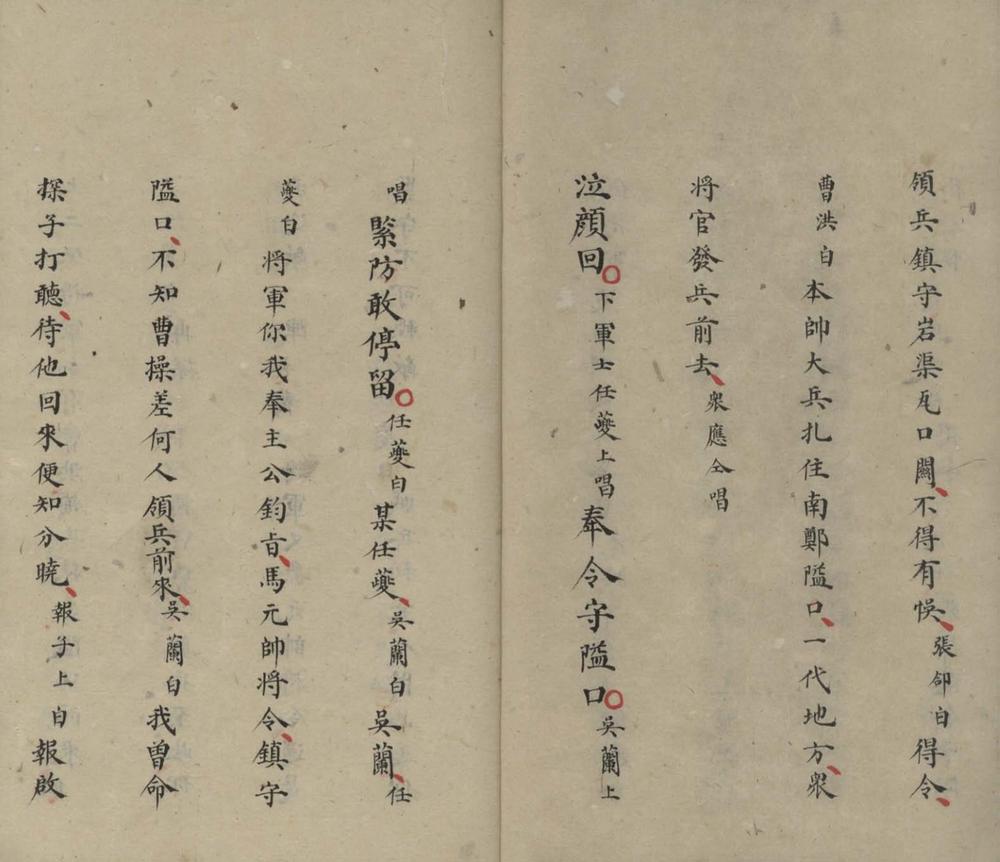 領兵鎮守岩渠瓦口關、不得有悞、張郃白得令、
曹洪白本帥大兵扎住南鄭隘口、一代地方、衆
將官發兵前去、衆應仝唱
泣顔回○下軍士任夔上唱奉令守隘口○吳蘭上
唱緊防敢停留○任夔白某任夔、吳蘭白吳蘭、任
夔白將軍你我奉主公鈞旨、馬元帥將令、鎮守
隘口、不知曹操差何人領兵前來、吳蘭白我曾命
探子打聽、待他回來便知分曉、報子上白報啟